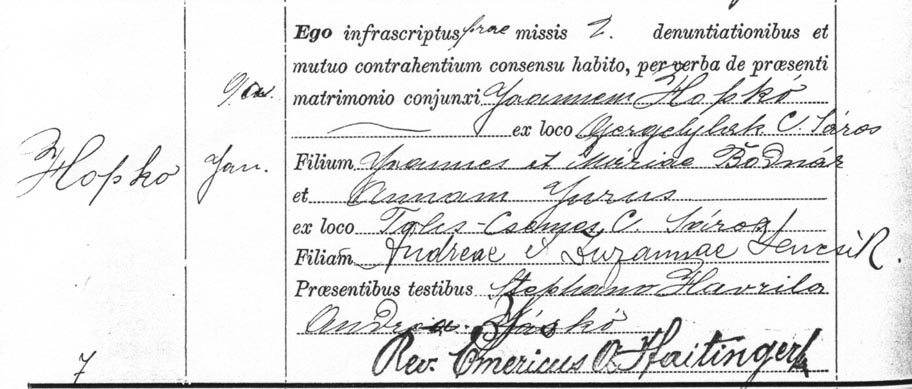 Ego infrascriptus prae missis 2. denuntiationibus et
mutuo contrahentium consensu habito, per verba de præsenti
9a Jan.
matrimonio conjunxi Joannem Hopkó
ex loco Gergelylak C. Sáros
Hopko
Filium Joannes et Máriae Bodnár
et Annam Yurus
ex loco Tolcs-Csemej C. Sáros
Filiam Andreae & Zuzannae Lencsik.
Præsentibus testibus Stephano Havrila
Andrea
7
Rev. Emericus A. Haitinger